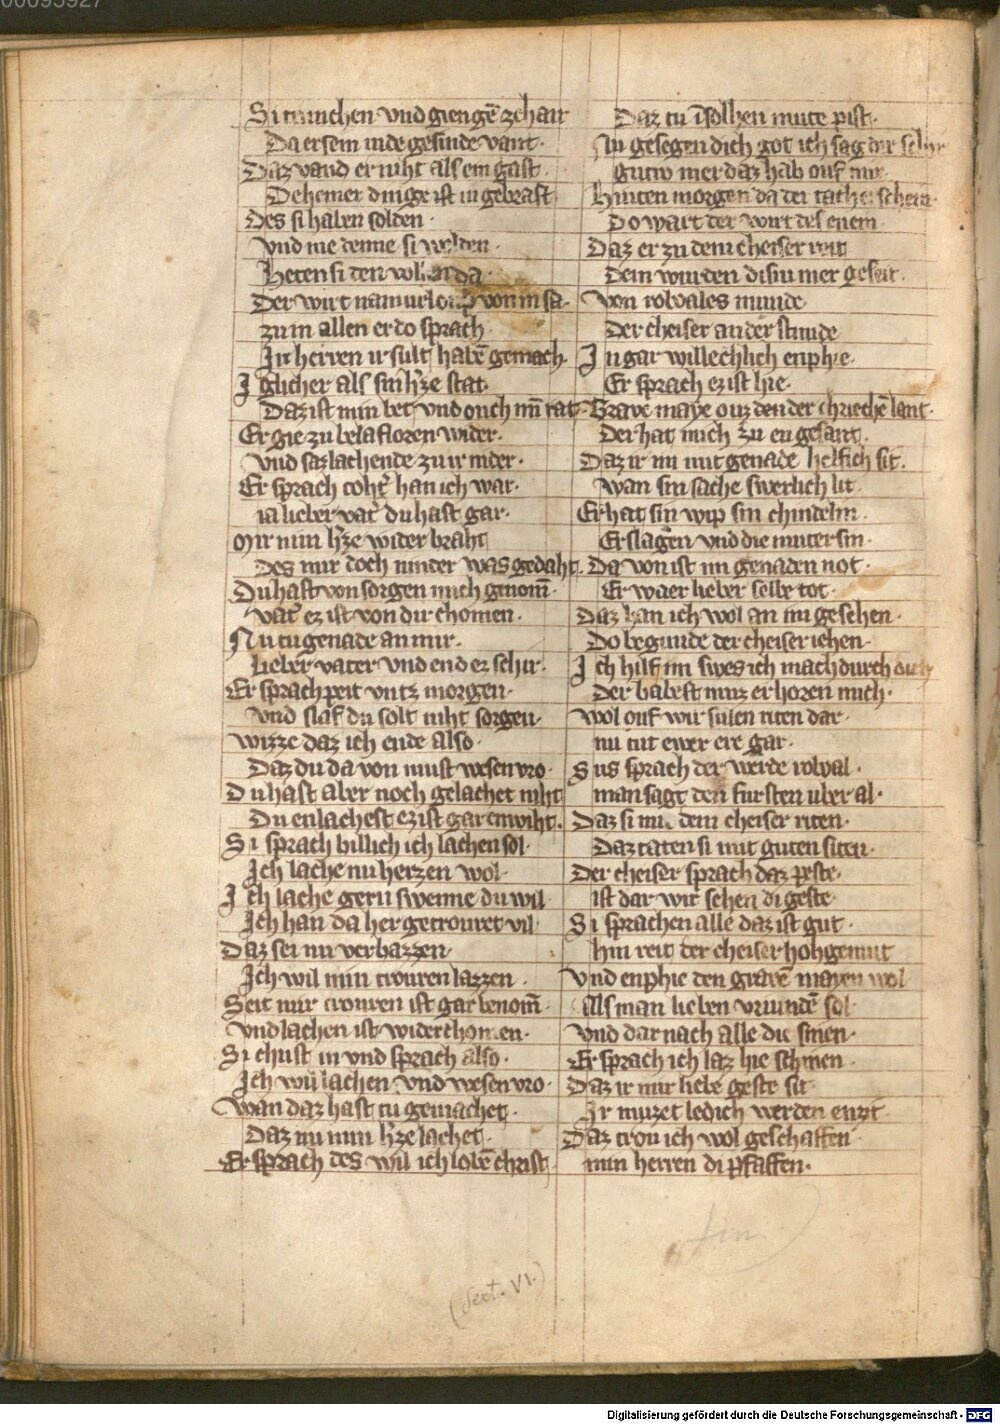 00095927
Si trunchen vnd giengē ze hant
Da er sein indegesinde vant·
Daz vand er niht als ein gast·
Deheiner dinge ist in gebrast
Des si haben solden·
vnd nie denne si wolden·
Heten si den vollen da·
Der wirt nam vrloup von in sa·
zu in allen er do sprach·
Ir herren ir sult habē gemach·
Iglicher als sin hˀze stat
Daz ist min bet vnd ouch mī rat·
Er gie zu belafloren wider·
vnd saz lachende zu ir nider·
Er sprach tohtˀ han ich war·
ia lieber vatˀ du hast gar·
Mir min hˀze wider braht
Des mir doch ninder was gedaht·
Du hast von sorgen mich genom̄·
vatˀ ez ist von dir chomen·
Nu tu genade an mir·
lieber vater vnd end ez schir·
Er sprach peit vntz morgen·
vnd slaf du solt niht sorgen·
wizze daz ich ende also·
Daz du da von must wesen vro·
Du hast aber noch gelachet niht
Du enlachest ez ist gar enwiht·
Si sprach billich ich lachen sol·
Ich lache nu herzen wol·
Ich lache gern swenne du wil·
Ich han da her getrouret vil·
Daz sei nu verbazzen·
Ich wil min trouren lazzen·
Seit mir trouren ist gar benom̄·
vnd lachen ist wider chomen·
Si chust in vnd sprach also·
Ich wil lachen vnd wesen vro·
wan daz hast tu gemachet·
Daz nu min hˀze lachet·
Er sprach des wil ich lobē christ
Daz tu ī solhen mute pist·
Nu gesegen dich got ich sag dir
gutiv mer daz hab ouf mir
Hinten morgen da der tach erschein·
Do wart der wirt des enein·
Daz er zu dem cheiser reit
Dem wurden disiu mer geseit·
von rolvales munde·
Der cheiser an der stunde
In gar willechlich enphie·
Er sprach ez ist hie·
Grave maye ouz den der chriechē lant·
Der hat mich zu eu gesant·
Daz ir im mit genade helflich sit·
wan sin sache swerlich lit
Er hat sin wip sin chindelin·
Erslagen vnd die muter sin·
Da von ist im genaden not·
Er waer lieber selbe tot·
Daz han ich wol an im gesehen·
Do begunde der cheiser iehen·
Ich hilf im swes ich mach durch dich
Der babest muz erhoren mich·
wol ouf wir sulen riten dar·
nu tut ewer ere gar·
Sus sprach der werde rolval·
man sagt den fursten uber al·
Daz si mit dem cheiser riten·
Daz taten si mit guten siten·
Der cheiser sprach daz peste·
ist dar wir sehen di geste·
Si sprachen alle daz ist gut·
hin reit der cheiser hohgemut
vnd enphie den gravē mayen wol
Als man lieben vriundē sol·
vnd dar nach alle die sinen·
Er sprach ich laz hie schinen·
Daz ir mir liebe geste sit
Ir muzet ledich werden enzit·
Daz trou ich wol geschaffen
min herren di pfaffen·
(Sext. VI.)
Digitalisierung gefördert durch die Deutsche Forschungsgemeinschaft - DFG